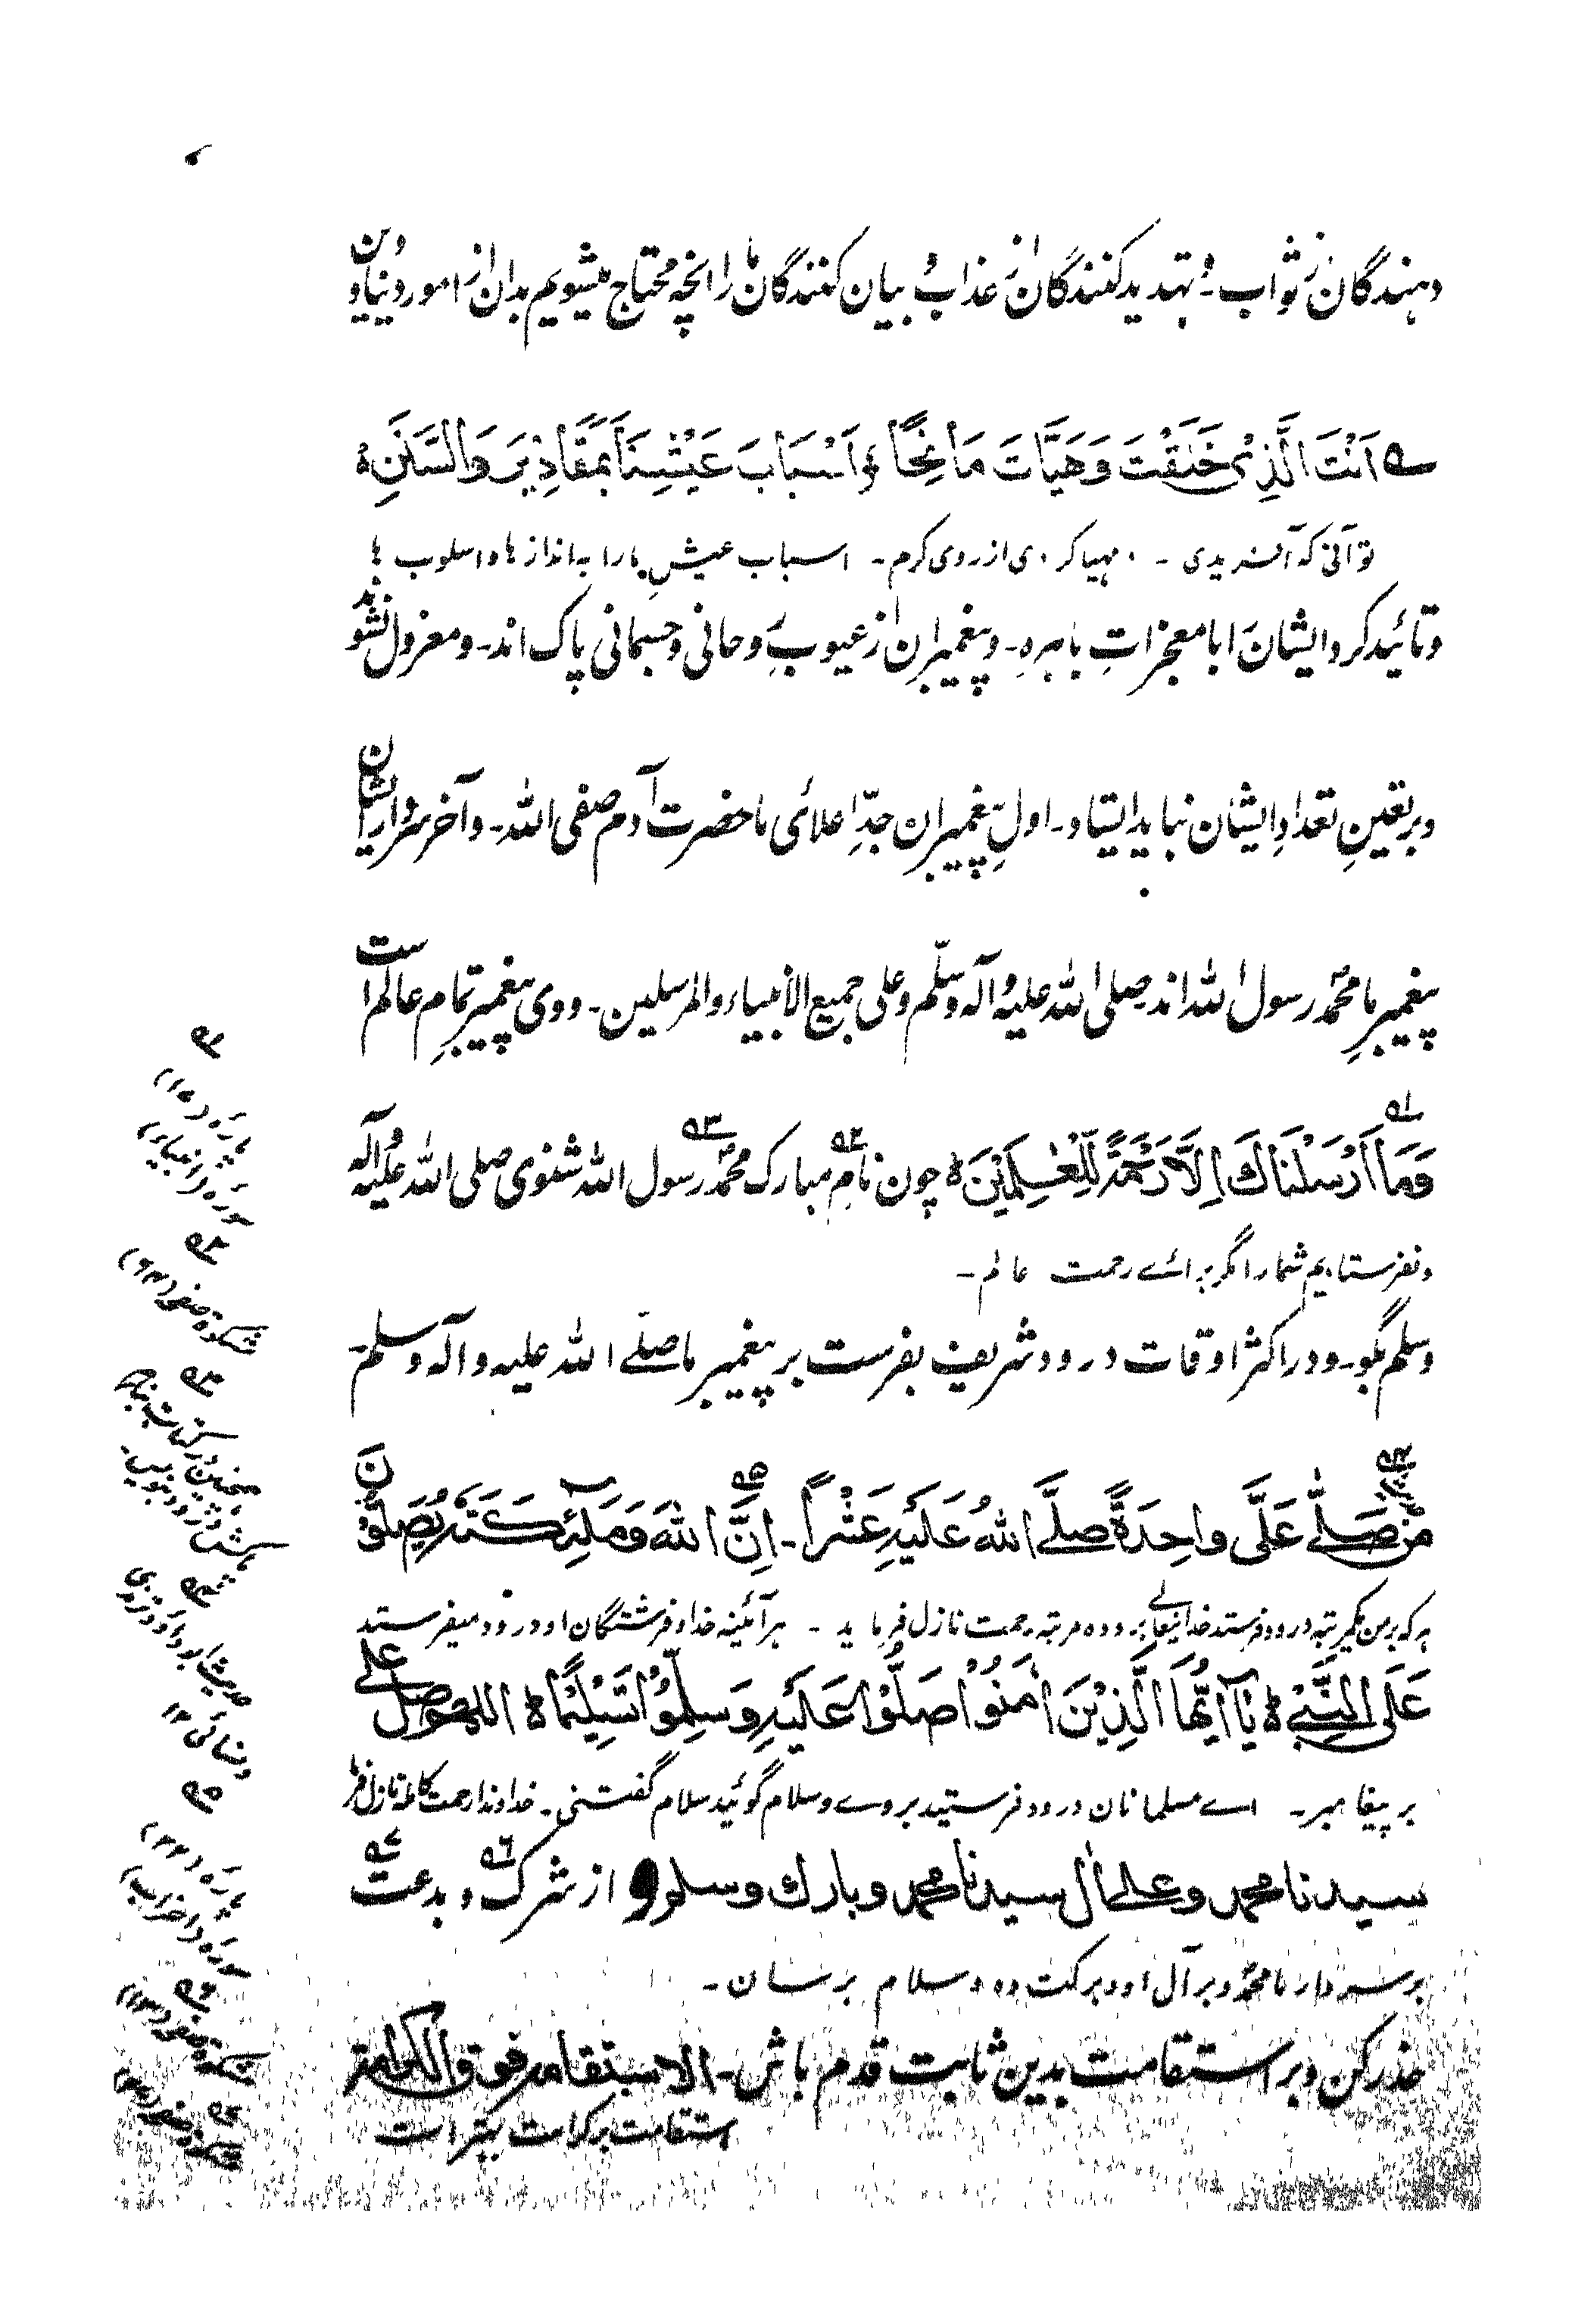 دهندگان ز ثواب۔ و تهدید کنندگان از عذاب و بیان کنندگان ما را انچه محتاج میشویم بدان از امور دنیا و دین
اَنْتَ الَّذِیْ خَلَقْتَ وَهَيَّاتَ مَانِحًا ۞ اَسْبَابَ عَيْشِنَا بِمَقَادِيْرَ وَالسَّنَنِ
تو آنی که آفریدی ۔ مهیا کردی از روی کرم ۔ اسباب عیشِ ما را به اندازها و اسلوب ها
و تائید کرد ایشان را با معجزاتِ باهره۔ و پیغمبران از عیوبِ روحانی و جسمانی پاک اند۔ و معزول نشوند
و بر تعینِ تعدادِ ایشان نباید ایستاد۔ اولِ پیغمبران جدِّ اعلائی ما حضرت آدم صفی الله۔ و آخر و سردار ایشان
پیغمبرِ ما محمد رسول الله اند صلی الله علیه و آله وسلّم و علی جمیع الأنبیاء والمرسلین۔ و وی پیغمبرِ تمامِ عالم است
وَمَا اَرْسَلْنَاكَ اِلَّا رَحْمَةً لِّلْعٰلَمِيْنَ ۞ چون نامِ مبارک محمد رسول الله شنوی صلی الله علیه و آله
و نفرستادیم شما را مگر برائے رحمت عالم۔
وسلم بگو۔ و در اکثر اوقات درود شریف بفرست بر پیغمبر ما صلّے الله علیه و آله وسلم۔
مَنْ صَلّٰى عَلَىَّ وَاحِدَةً صَلَّے اللهُ عَلَيْهِ عَشْراً۔ اِنَّ اللهَ وَمَلٰئِكَتَهٗ يُصَلُّوْنَ
هر که بر من یکمرتبه درود فرستد خدا تعالی برو ده مرتبه رحمت نازل فرماید ۔ هر آئینه خدا و فرشتگان او درود میفرستند
عَلَى النَّبِيِّ ۞ يَآ اَيُّهَا الَّذِيْنَ اٰمَنُوْا صَلُّوْا عَلَيْهِ وَسَلِّمُوْا تَسْلِيْمًا ۞ اللهم صل على
بر پیغامبر۔ اے مسلمانان درود فرستید بر وے و سلام گوئید سلام گفتنی۔ خداوندا رحمت کامله نازل فرما
سيدنا محمد وعلى اٰل سيدنا محمد وبارك وسلم و از شرک و بدعت
بر سردار ما محمد و بر آل او و برکت ده و سلام برسان۔
حذر کن و بر استقامت بدین ثابت قدم باش۔ الاستقامة فوق الكرامة
استقامت بر کرامت بهتر است
۵۱
پاره (۱۷)
سوره انبیاء
۵۲
مشکوة صفحه
۵۳
۵۴
۵۵
پاره (۲۲)
سوره احزاب
۵۶
مشکوة صفحه
۵۷